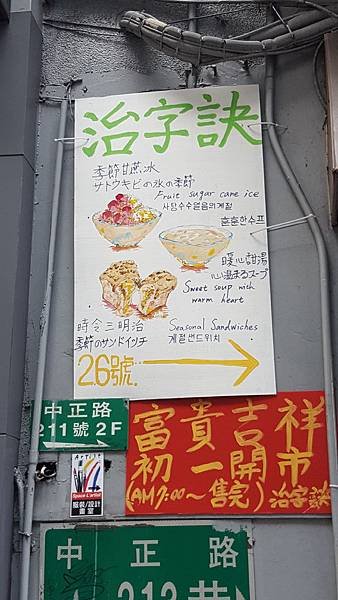 治字訣
季節甘蔗冰
サトウキビの氷の季節
Fruit sugar cane ice
사탕수수얼음의계절
훈훈한수프
暖心甜湯
心温まるスープ
Sweet soup with
warm heart
時令三明治
季節のサンドイッチ
Seasonal Sandwiches
계절샌드위치
26號.
中正路
211號 2F
富貴吉祥
初一開市
(AM7:00~售完) 治字訣
Space L'artist
服裝/設計
畫室
中正路
213巷